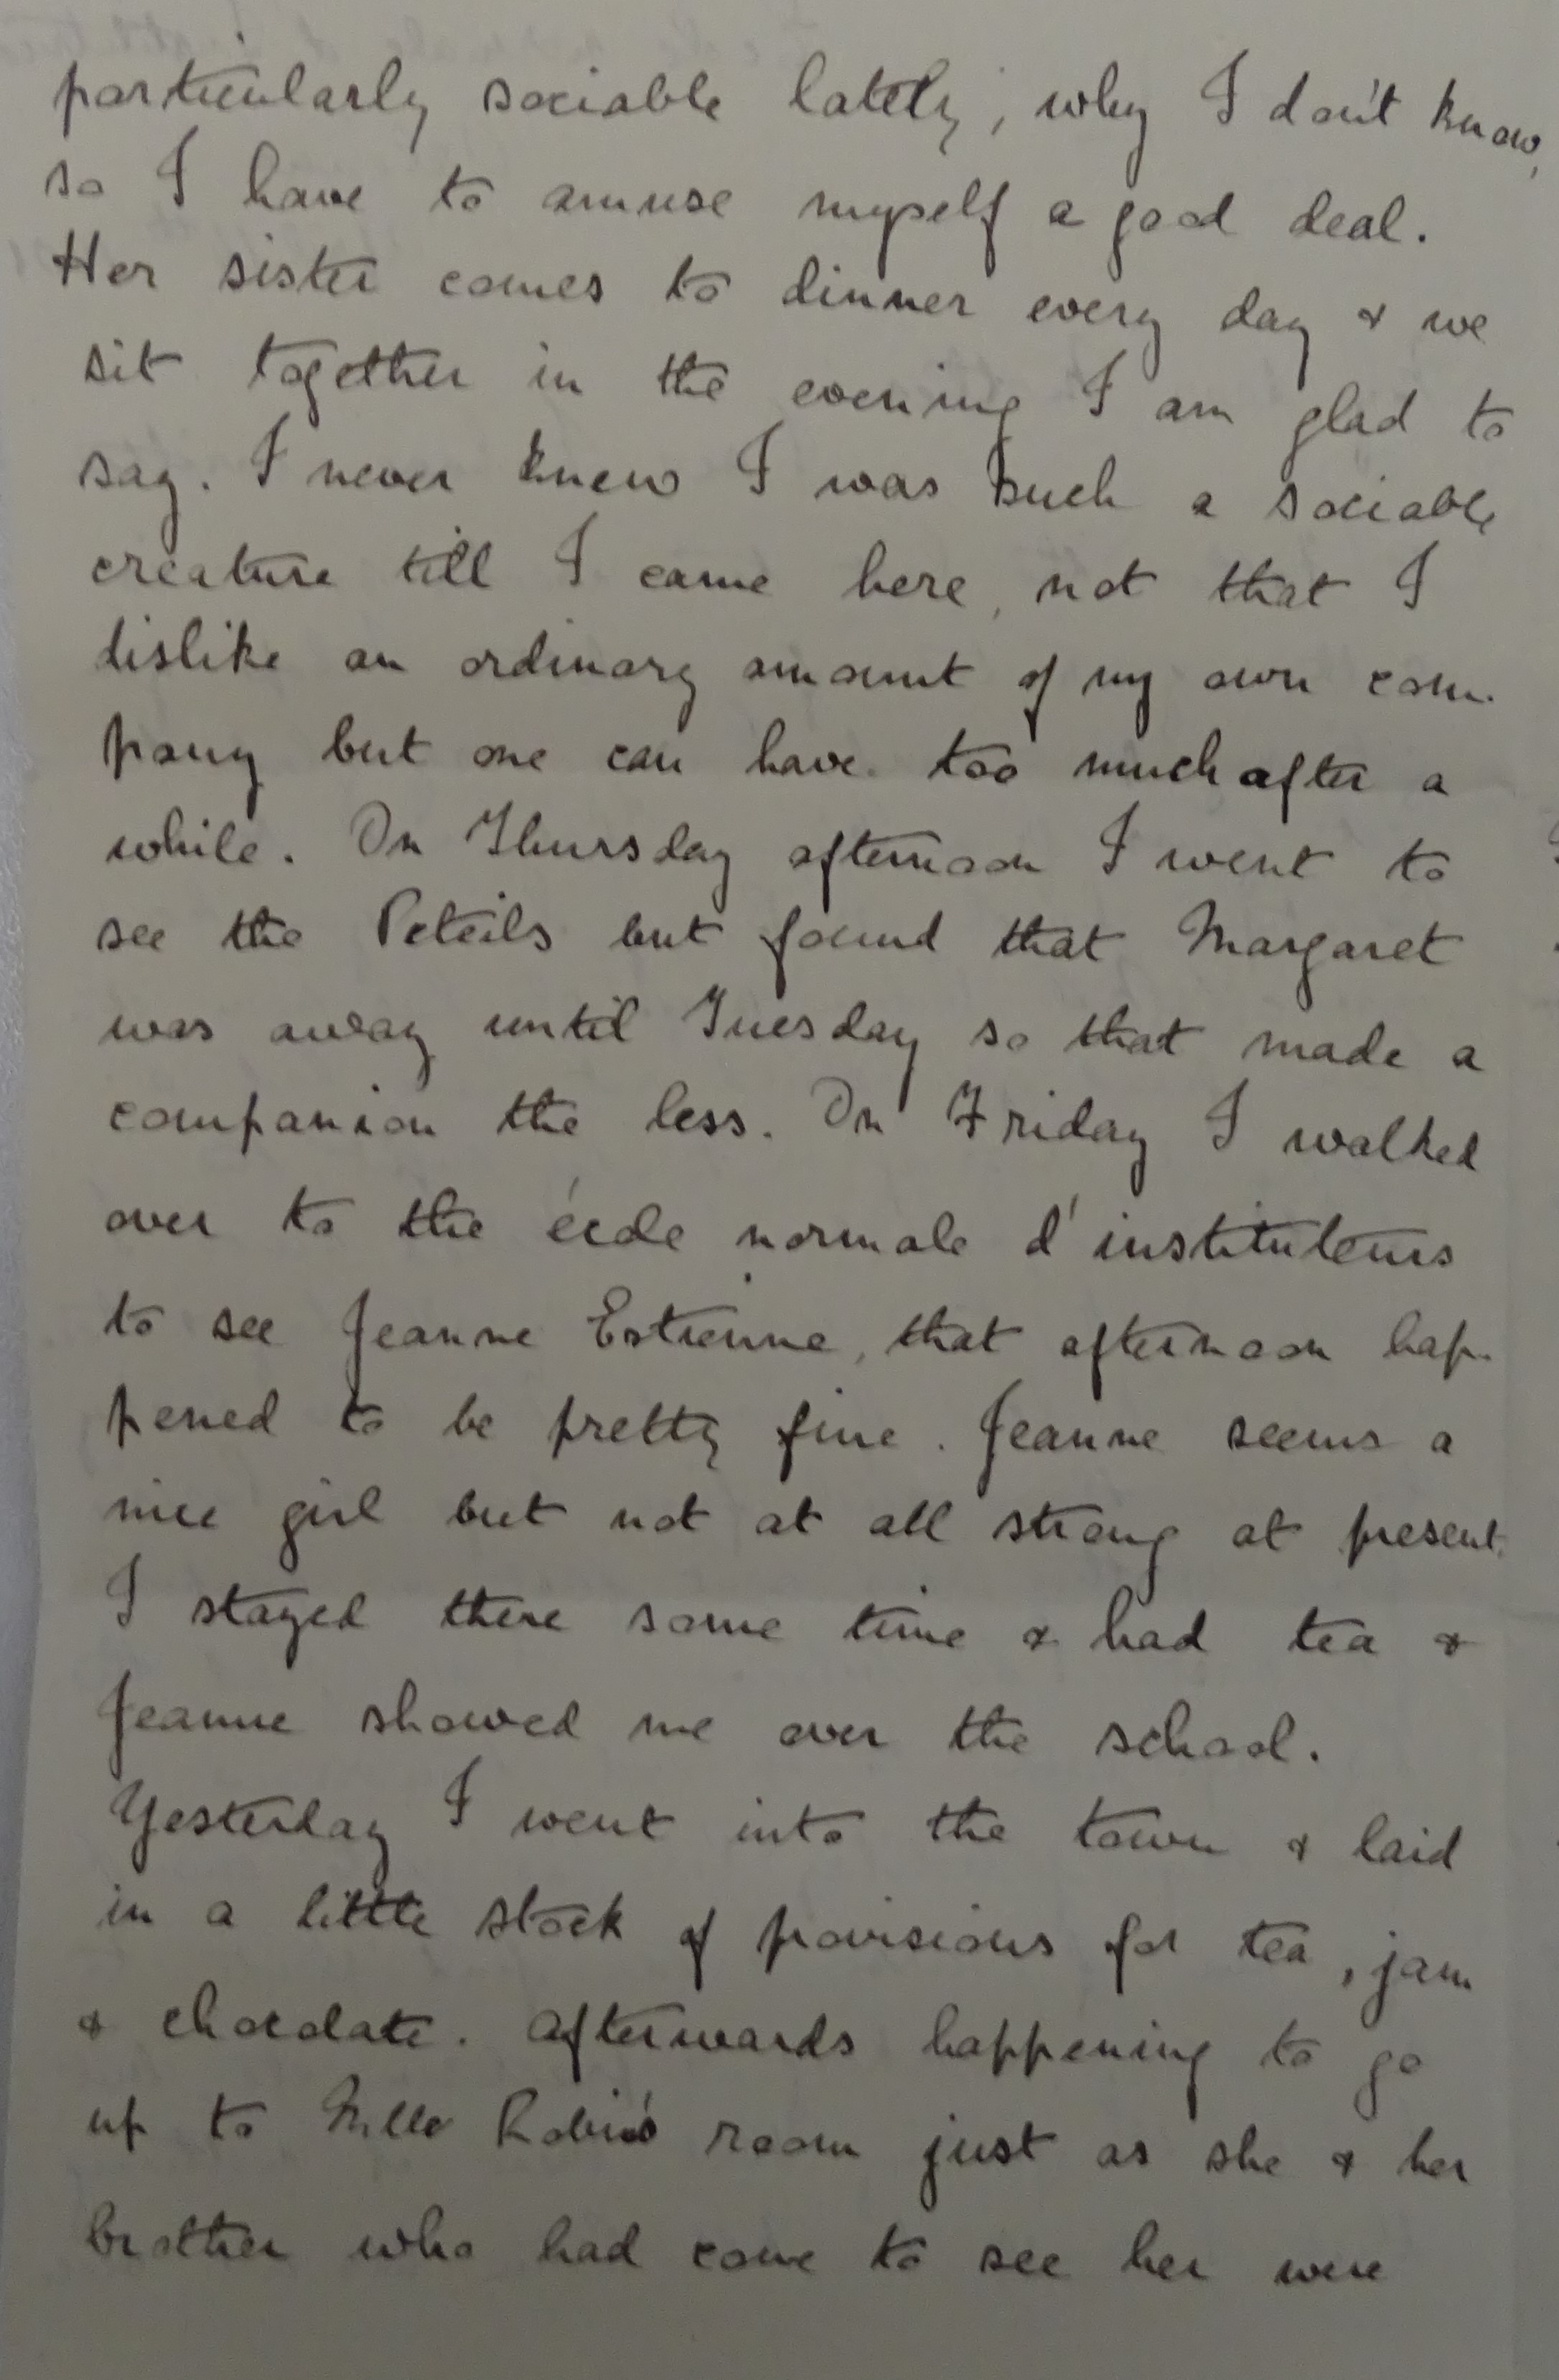 particularly sociable lately, why I don't know,
so I have to amuse myself a good deal.
Her sister comes to dinner every day & we
sit together in the evening I am glad to
say. I never knew I was such a sociable
creature till I came here, not that I
dislike an ordinary amount of my own com-
pany but one can have too much after a
while. On Thursday afternoon I went to
see the Peteils but found that Margaret
was away until Tuesday so that made a
companion the less. On Friday I walked
over to the école normale d'instituteurs
to see Jeanne Estienne, that afternoon hap-
pened to be pretty fine. Jeanne seems a
nice girl but not at all strong at present.
I stayed there some time & had tea &
Jeanne showed me over the school.
Yesterday I went into the town & laid
in a little stock of provisions for tea, jam
& chocolate. Afterwards happening to go
up to Mlle Robin's room just as she & her
brother who had come to see her were